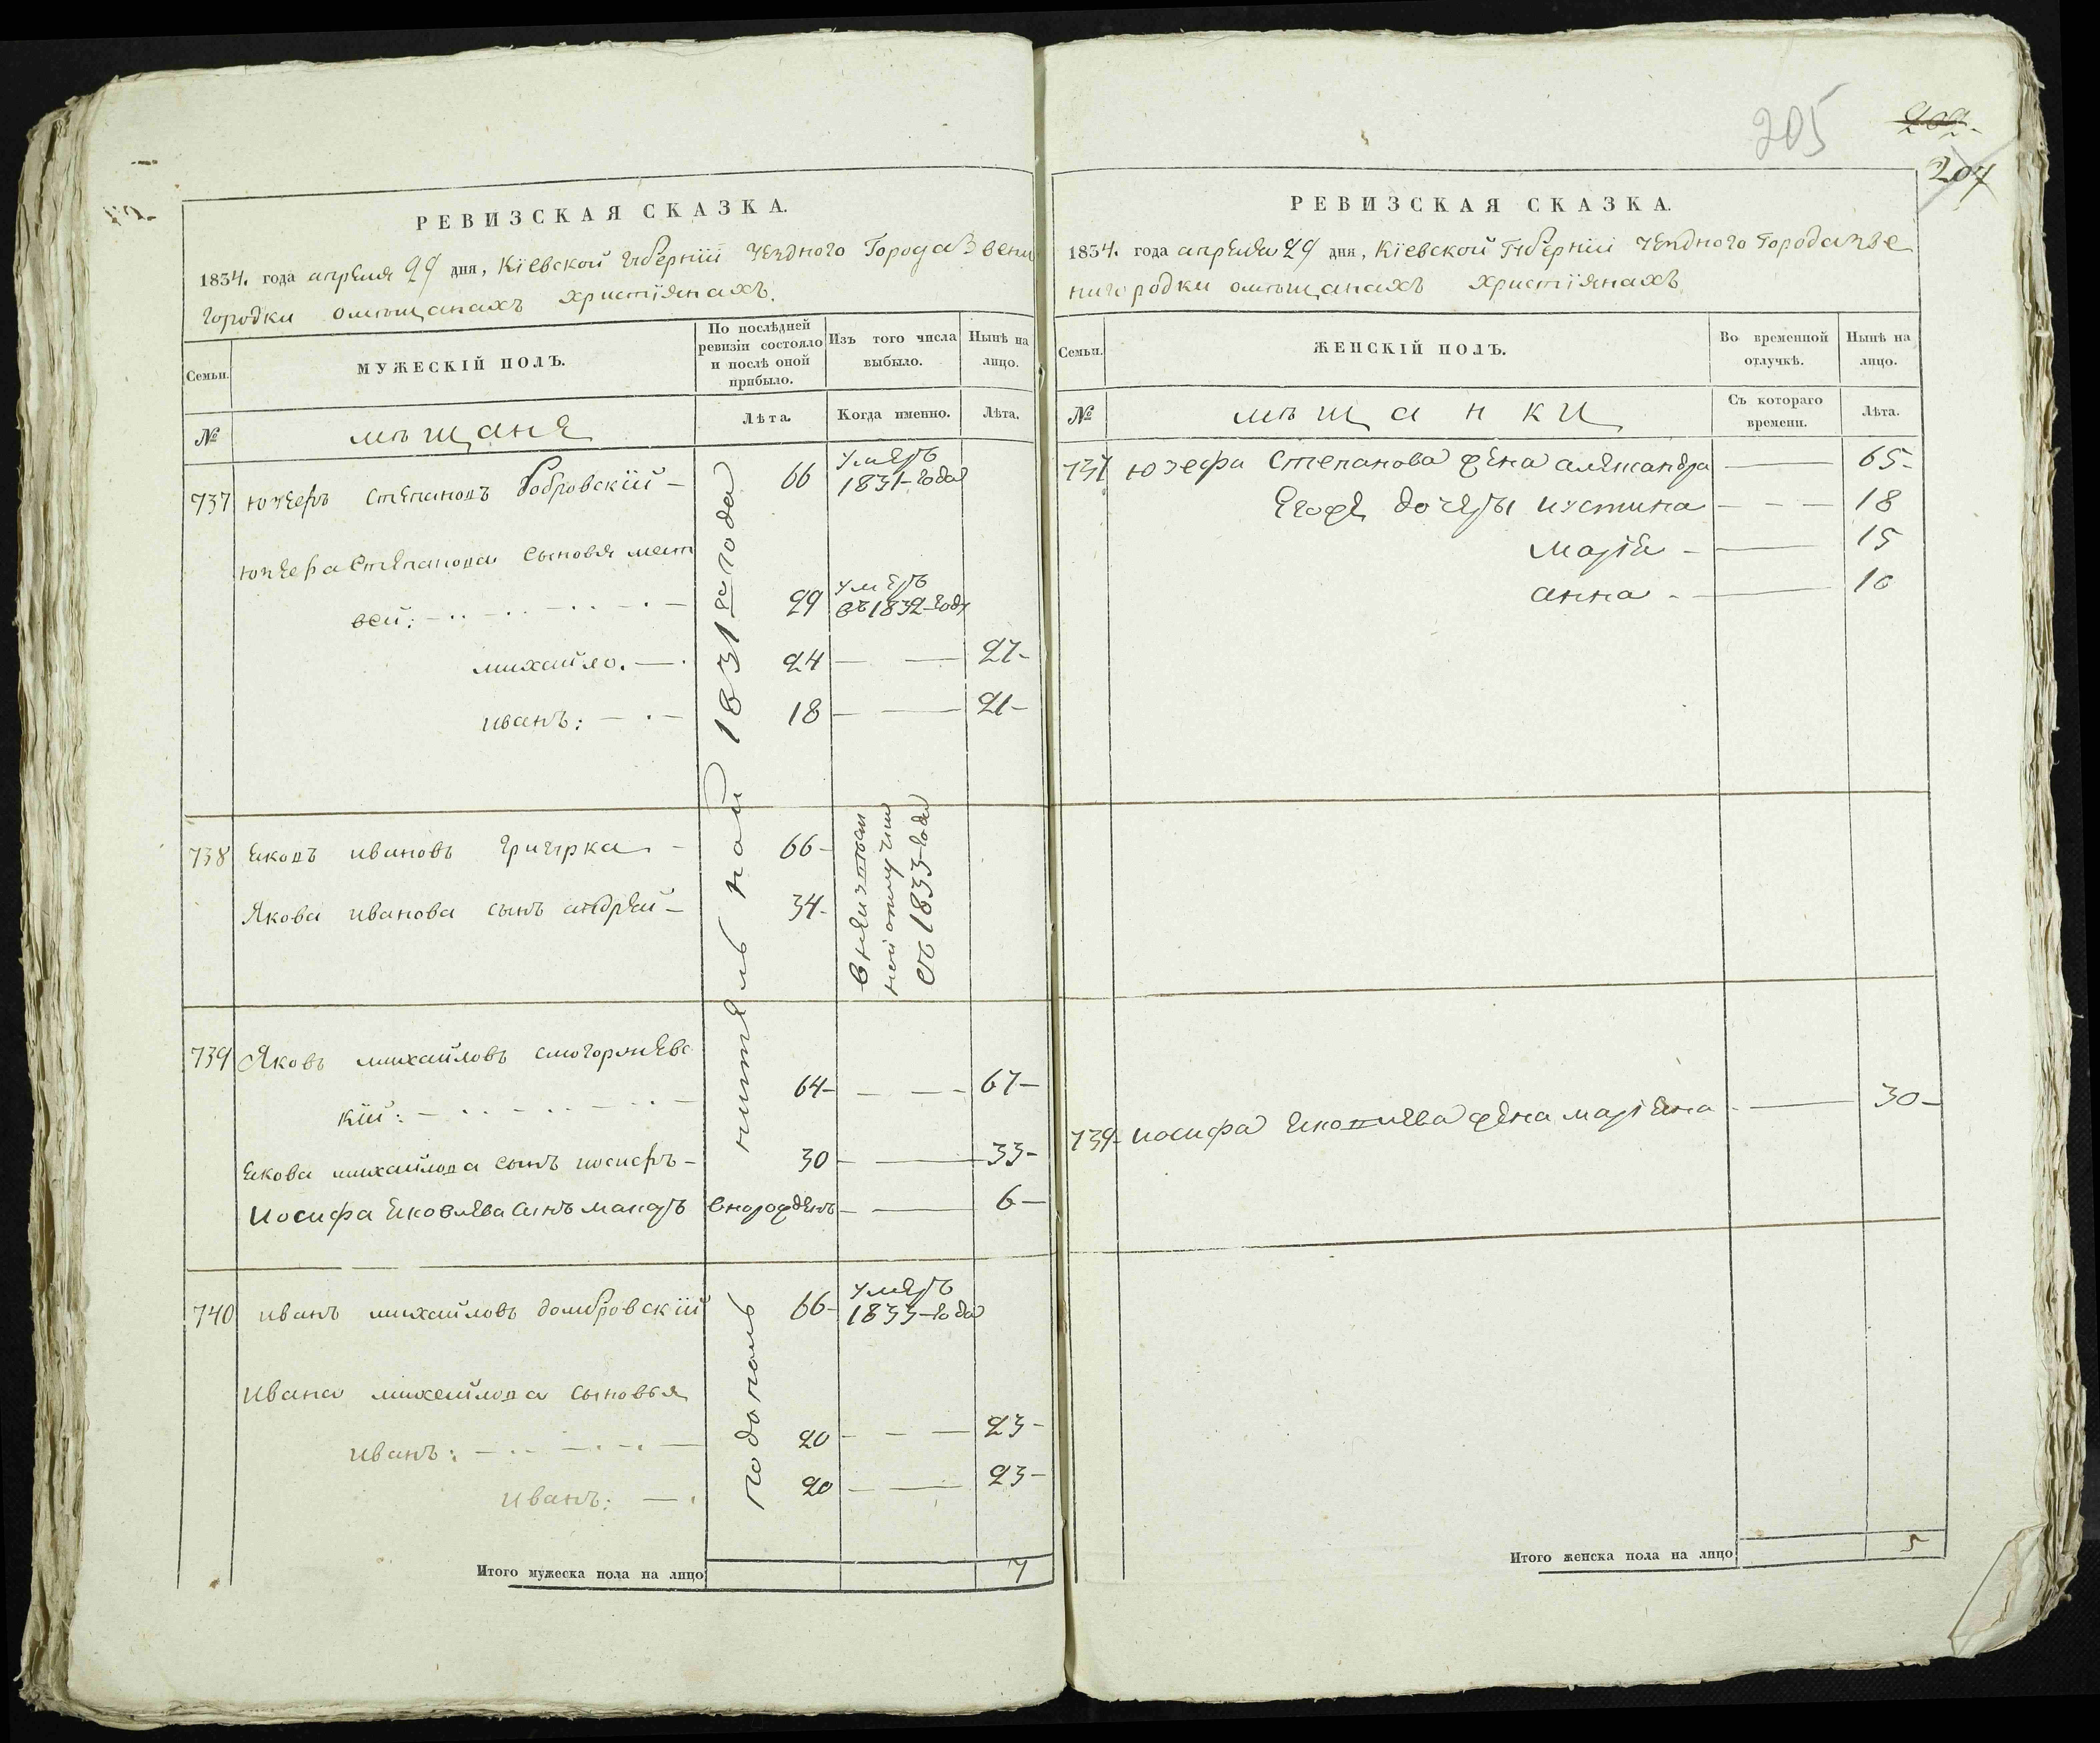 РЕВИЗСКАЯ СКАЗКА.
1834. года апреля 29 дня, Кіевской Губерніи уездного Города Звени
городки омещанахъ християнахъ.
Семьи.
МУЖЕСКІЙ ПОЛЪ.
По послѣдней
ревизіи состояло
и послѣ оной
прибыло.
Изъ того числа
выбыло.
Нынѣ на
лицо.
№
мѣщане
Лѣта.
Когда именно.
Лѣта.
737 Юзефъ Степановъ Бобровскій — 66 умеръ
1831-года
Юзефа Степанова сыновя мат
вей: 29 умеръ
въ 1832-году
михайло. 24 — — 27-
иванъ: 18 — — 21-
738 Яковъ ивановъ 66-
Якова иванова сынъ андрей — 34-
съ 1833-года
739 Яковъ михайловъ смогоржевс
кій: 64- — — 67-
Якова михайлова сынъ иосифъ - 30 — 33-
Иосифа Яковлева синъ макаръ вновродженъ — — 6-
740 иванъ михайловъ домбровскій 66- умеръ
1833-года
Ивана михайлова сыновья
иванъ: 20 — — 23-
иванъ: 20 — — 23-
1831го года
Итого мужеска пола на лицо 7
205
202
204
РЕВИЗСКАЯ СКАЗКА.
1834. года апреля 29 дня, Кіевской Губерніи уездного города зве
нигородки омещанахъ християнахъ
Семьи.
ЖЕНСКІЙ ПОЛЪ.
Во временной
отлучкѣ.
Нынѣ на
лицо.
№
мѣщанки
Съ котораго
времени.
Лѣта.
737 юзефа Степанова жена александра — 65-
Егоже дочеры иустина — — — 18
марія — 15
анна — 10
739- иосифа Яковлева жена маріяна — 30-
Итого женска пола на лицо 5